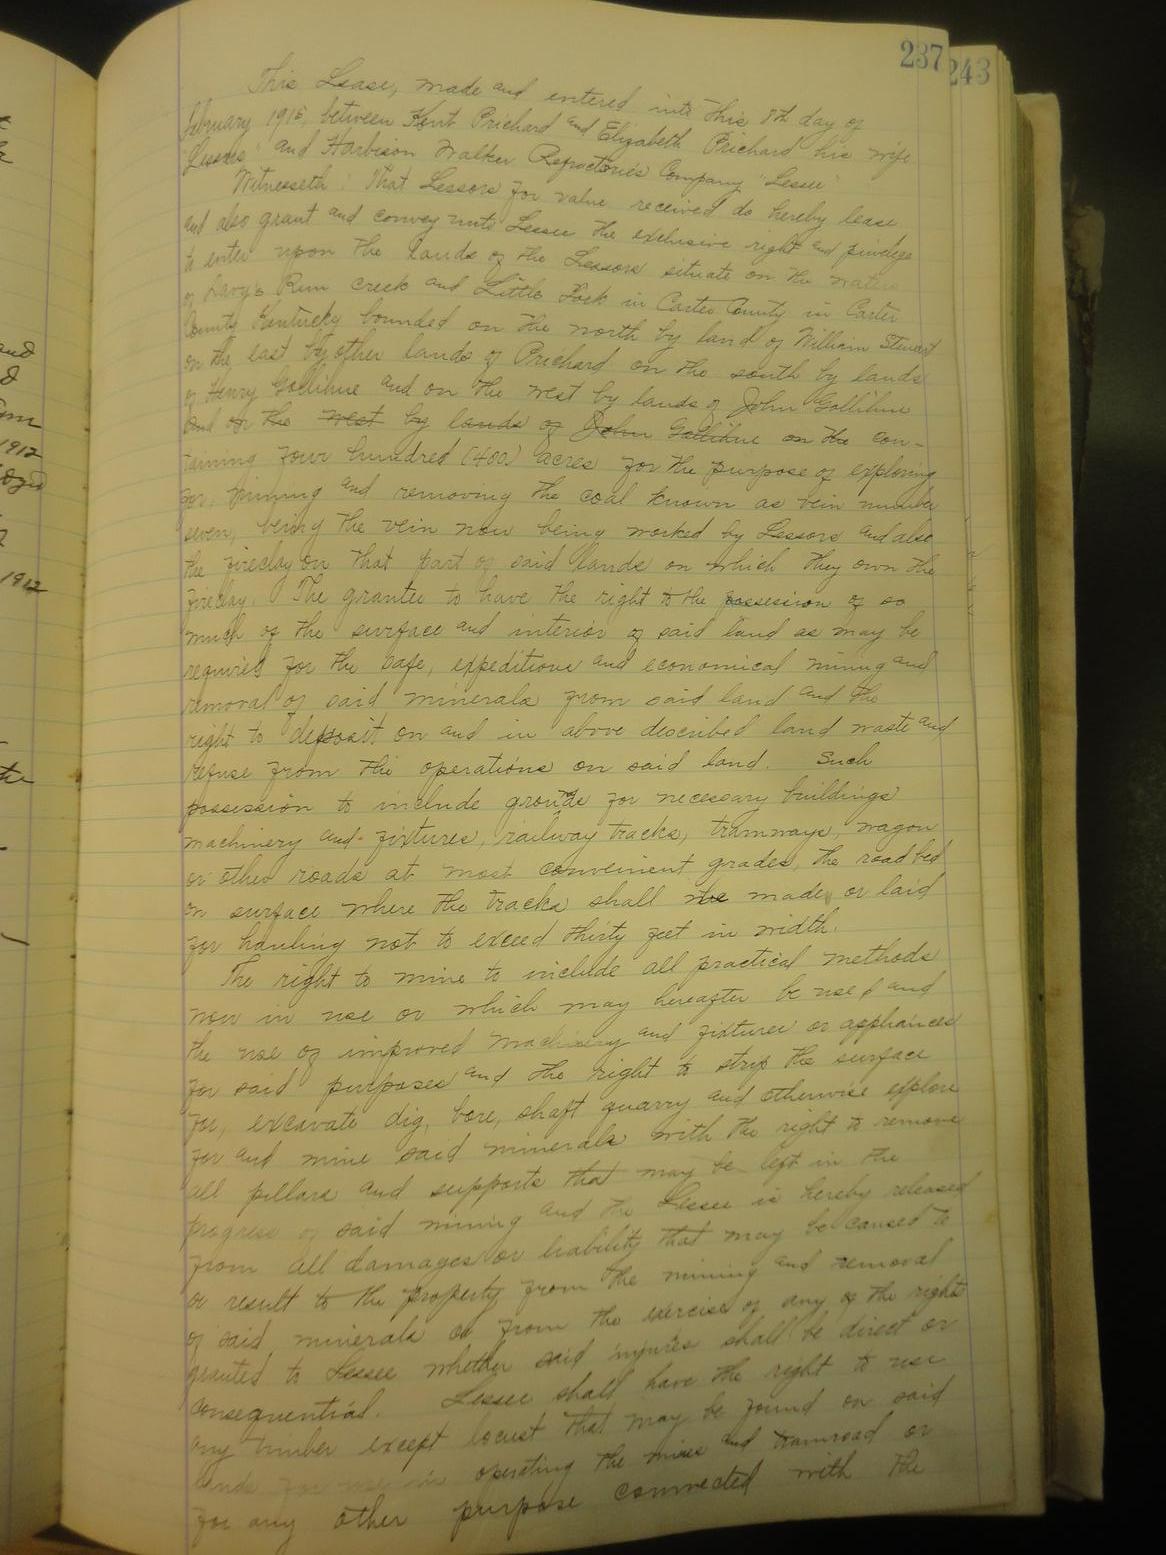 237
243
This Lease, made and entered into this 8th day of
February 1915, between Kent Prichard and Elizabeth Prichard his wife
"Lessors" and Harbison Walker Refractories Company "Lessee"
Witnesseth: That Lessors for value received do hereby lease
and also grant and convey unto Lessee the exclusive right and privilege
to enter upon the lands of the Lessors situate on the waters
of Run creek and Little Fork in Carter County in Carter
County Kentucky bounded on the north by land of William Stewart
on the east by other lands of Prichard on the south by lands
of Henry Gollihue and on the west by lands of John Gollihue
and on the west by lands of John Gollihue on the con-
taining four hundred (400) acres for the purpose of exploring
for, mining and removing the coal known as vein number
seven, being the vein now being worked by Lessors and also
the fireclay on that part of said lands on which they own the
fireclay. The grantee to have the right to the possession of so
much of the surface and interior of said land as may be
required for the safe, expeditious and economical mining and
removal of said minerals from said land and the
right to deposit on and in above described land waste and
refuse from the operations on said land. Such
possession to include grounds for necessary buildings
machinery and fixtures, railway tracks, tramways, wagon
or other roads at most convenient grades, the road bed
on surface where the tracks shall be made or laid
for hauling not to exceed thirty feet in width.
The right to mine to include all practical methods
now in use or which may hereafter be used and
the use of improved machinery and fixtures or appliances
for said purposes and the right to strip the surface
for, excavate dig, bore, shaft quarry and otherwise explore
for and mine said minerals with the right to remove
all pillars and supports that may be left in the
progress of said mining and the Lessee is hereby released
from all damages or liability that may be caused to
or result to the property from the mining and removal
of said minerals or from the exercise of any of the right
granted to Lessee whether said injuries shall be direct or
consequential. Lessee shall have the right to use
any timber except locust that may be found on said
lands for use in operating the mines and tramroad or
for any other purpose connected with the
and
1912
1912